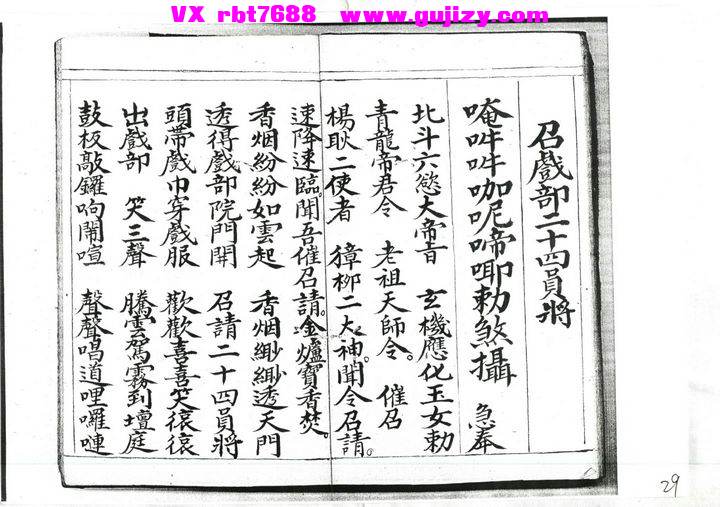 VX rbt7688 www.gujizy.com
召戲部二十四員將
唵吽吽咖呢啼唧勅煞攝 急奉
北斗六慾大帝旨 玄機應化玉女勅
青龍帝君令 老祖天師令。 催召
楊耿二使者 獐柳二大神。聞令召請。
速降速臨聞吾催召請。金爐寶香焚。
香烟紛紛如雲起 香烟緲緲透天門
透得戲部院門開 召請二十四員將
頭帶戲巾穿戲服 歡歡喜喜笑
出戲部 笑三聲 騰雲駕霧到壇庭
鼓板敲鑼响鬧喧 聲聲唱道哩囉嗹
29